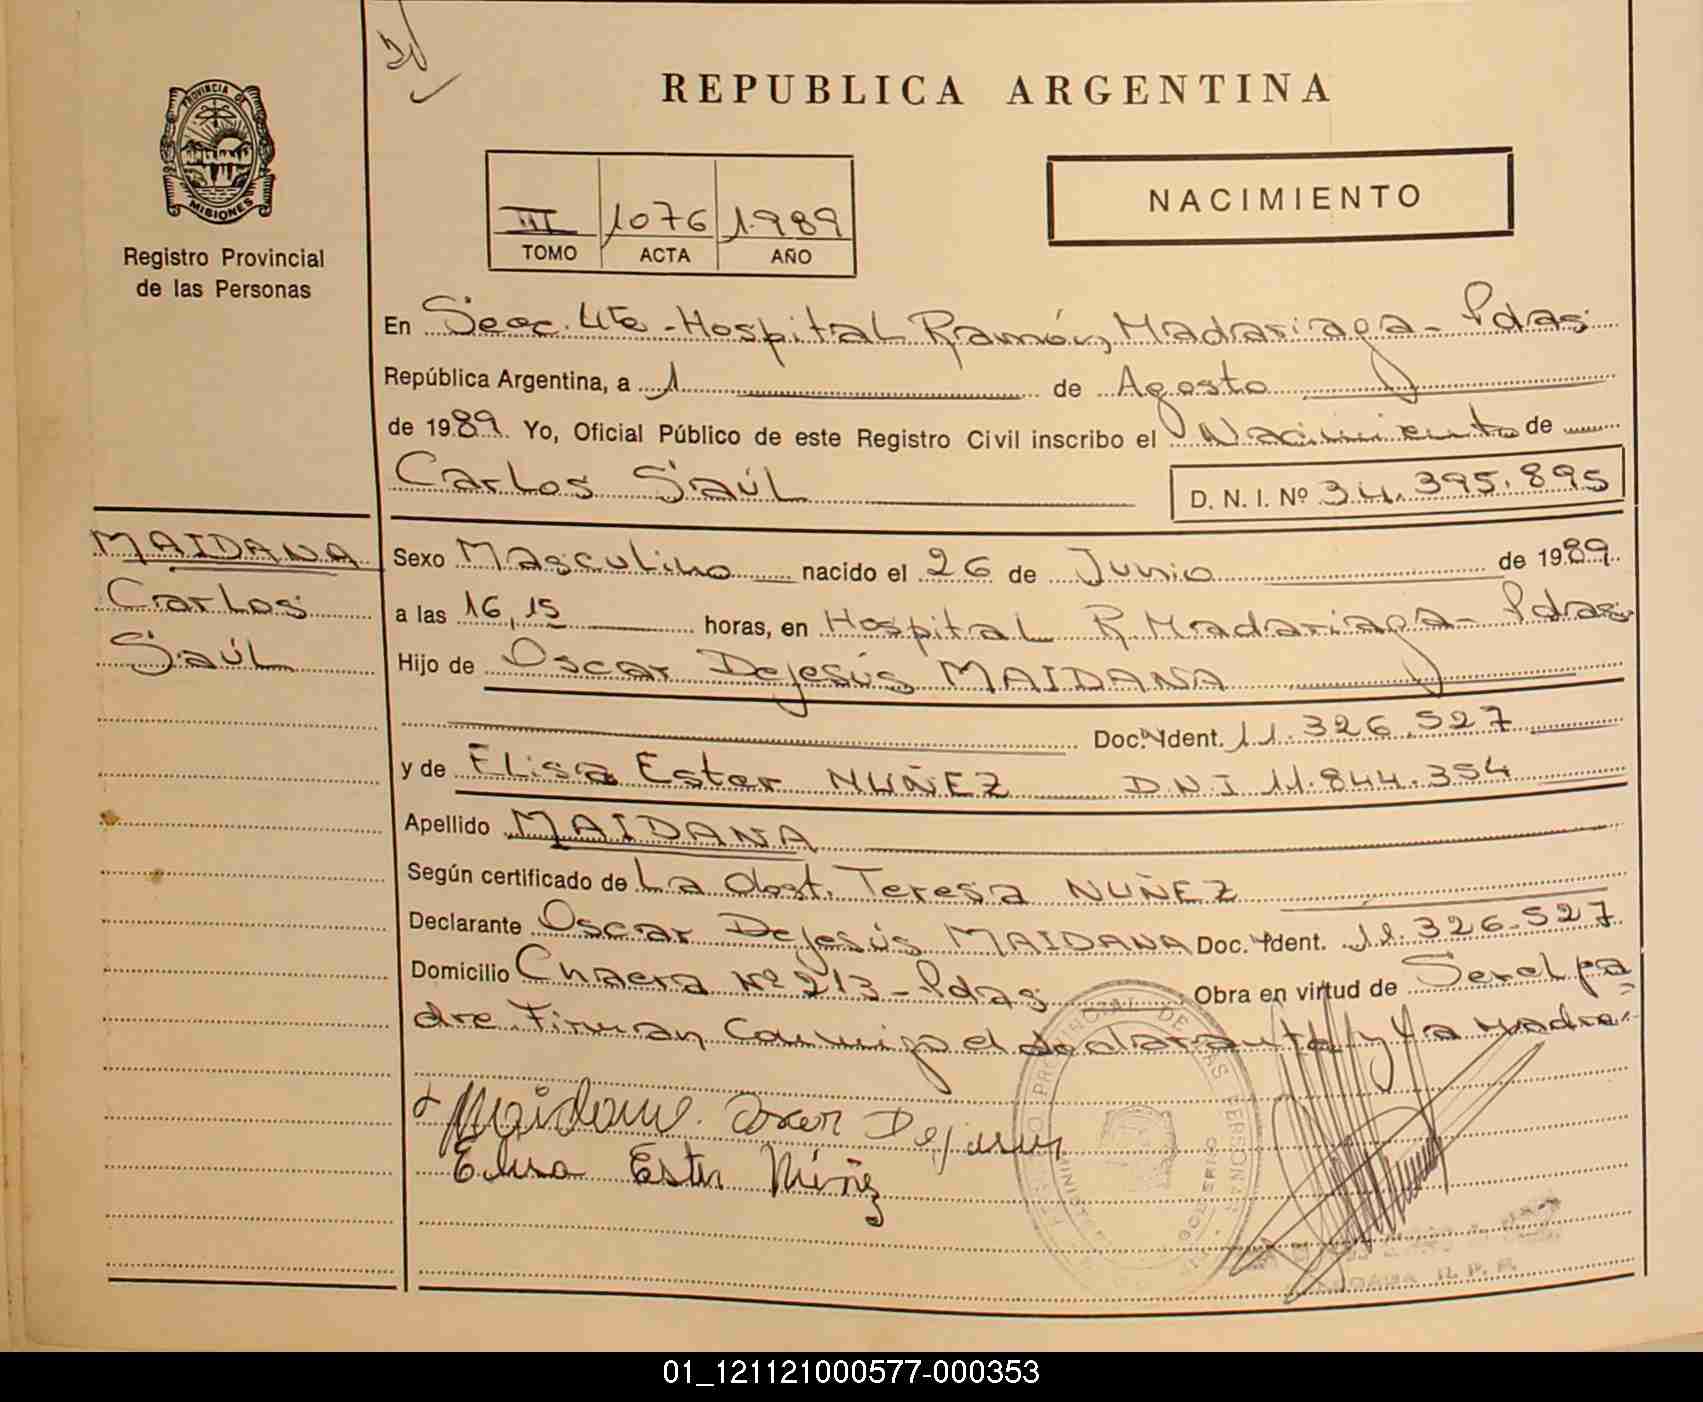 PROVINCIA DE
MISIONES
Registro Provincial
de las Personas
MAIDANA
Carlos
Saúl
REPUBLICA ARGENTINA
III 1076 1989
TOMO ACTA AÑO
NACIMIENTO
En Secc. 4ta - Hospital Ramón Madariaga - Pdas
República Argentina, a 1 de Agosto
de 1989. Yo, Oficial Público de este Registro Civil inscribo el Nacimiento de
Carlos Saúl D. N. I. Nº 34.395.895
Sexo Masculino nacido el 26 de Junio de 1989.
a las 16,15 horas, en Hospital R. Madariaga - Pdas
Hijo de Oscar Dejesús MAIDANA
Doc. Ident. 11.326.527
y de Elisa Ester NUÑEZ DNI 11.844.354
Apellido MAIDANA
Según certificado de La Obst. Teresa NUÑEZ
Declarante Oscar Dejesús MAIDANA Doc. Ident. 11.326.527
Domicilio Chacra Nº 213 - Pdas Obra en virtud de Ser el pa
dre. Firman conmigo el declarante y la Madre.
Maidana Oscar Dejesus
Elisa Ester Núñez
PROVINCIAL DE LAS PERSONAS
GOBIERNO
01_121121000577-000353